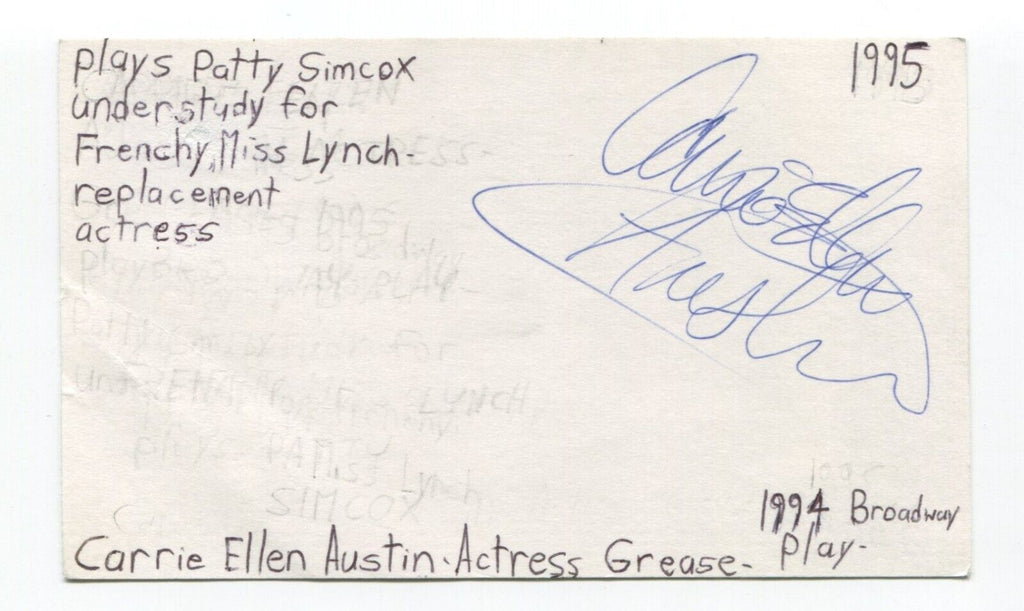 plays Patty Simcox
understudy for
Frenchy, Miss Lynch-
replacement
actress
1995
Carrie Ellen
Austin
1994 Broadway
Play-
Carrie Ellen Austin. Actress Grease-